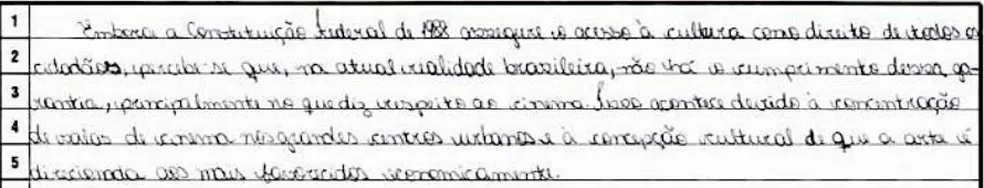 1 Embora a Constituição Federal de 1988 assegure o acesso à cultura como direito de todos os
2 cidadãos, percebe-se que, na atual realidade brasileira, não há o cumprimento dessa ga-
3 rantia, principalmente no que diz respeito ao cinema. Isso acontece devido à concentração
4 de salas de cinema nos grandes centros urbanos e à concepção cultural de que a arte é
5 direcionda aos mais favorecidos economicamente.